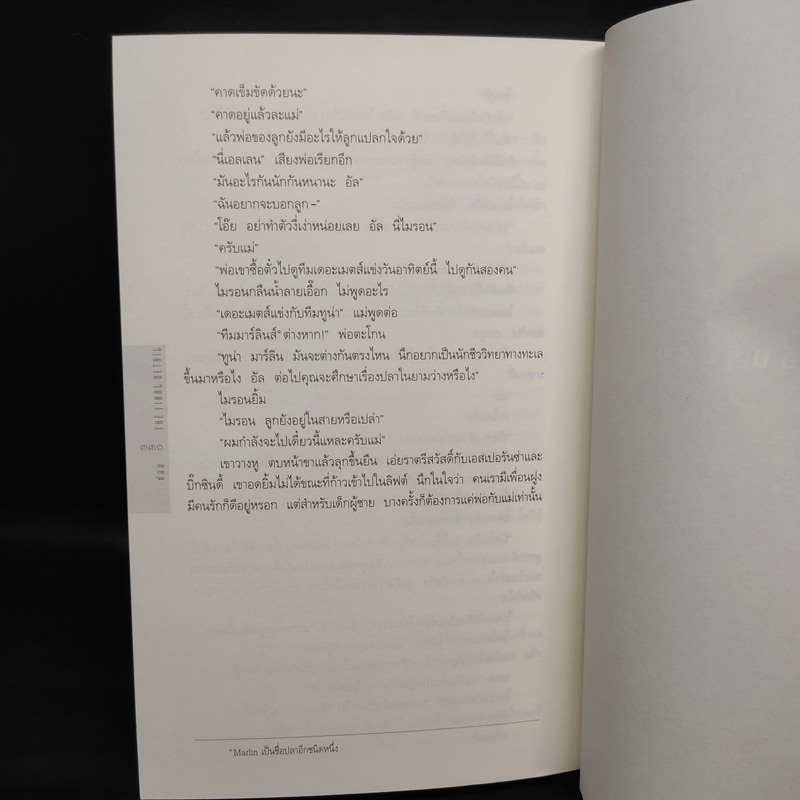 “คาดเข็มขัดด้วยนะ”
“คาดอยู่แล้วละแม่”
“แล้วพ่อของลูกยังมีอะไรให้ลูกแปลกใจด้วย”
“นี่เอลเลน” เสียงพ่อเรียกอีก
“มันอะไรกันนักกันหนานะ อัล”
“ฉันอยากจะบอกลูก–”
“โอ๊ย อย่าทำตัวงี่เง่าหน่อยเลย อัล นี่ไมรอน”
“ครับแม่”
“พ่อเขาซื้อตั๋วไปดูทีมเดอะเมตส์แข่งวันอาทิตย์นี้ ไปดูกันสองคน”
ไมรอนกลืนน้ำลายเอื๊อก ไม่พูดอะไร
“เดอะเมตส์แข่งกับทีมทูน่า” แม่พูดต่อ
“ทีมมาร์ลินส์* ต่างหาก!” พ่อตะโกน
“ทูน่า มาร์ลิน มันจะต่างกันตรงไหน นึกอยากเป็นนักชีววิทยาทางทะเล
ขึ้นมาหรือไง อัล ต่อไปคุณจะศึกษาเรื่องปลาในยามว่างหรือไง”
ไมรอนยิ้ม
“ไมรอน ลูกยังอยู่ในสายหรือเปล่า”
“ผมกำลังจะไปเดี๋ยวนี้แหละครับแม่”
เขาวางหู ตบหน้าขาแล้วลุกขึ้นยืน เอ่ยราตรีสวัสดิ์กับเอสเปอรันซ่าและ
บิ๊กซินดี้ เขาอดยิ้มไม่ได้ขณะที่ก้าวเข้าไปในลิฟต์ นึกในใจว่า คนเรามีเพื่อนฝูง
มีคนรักก็ดีอยู่หรอก แต่สำหรับเด็กผู้ชาย บางครั้งก็ต้องการแค่พ่อกับแม่เท่านั้น
THE FINAL DETAIL
๓๓๐
* Marlin เป็นชื่อปลาอีกชนิดหนึ่ง